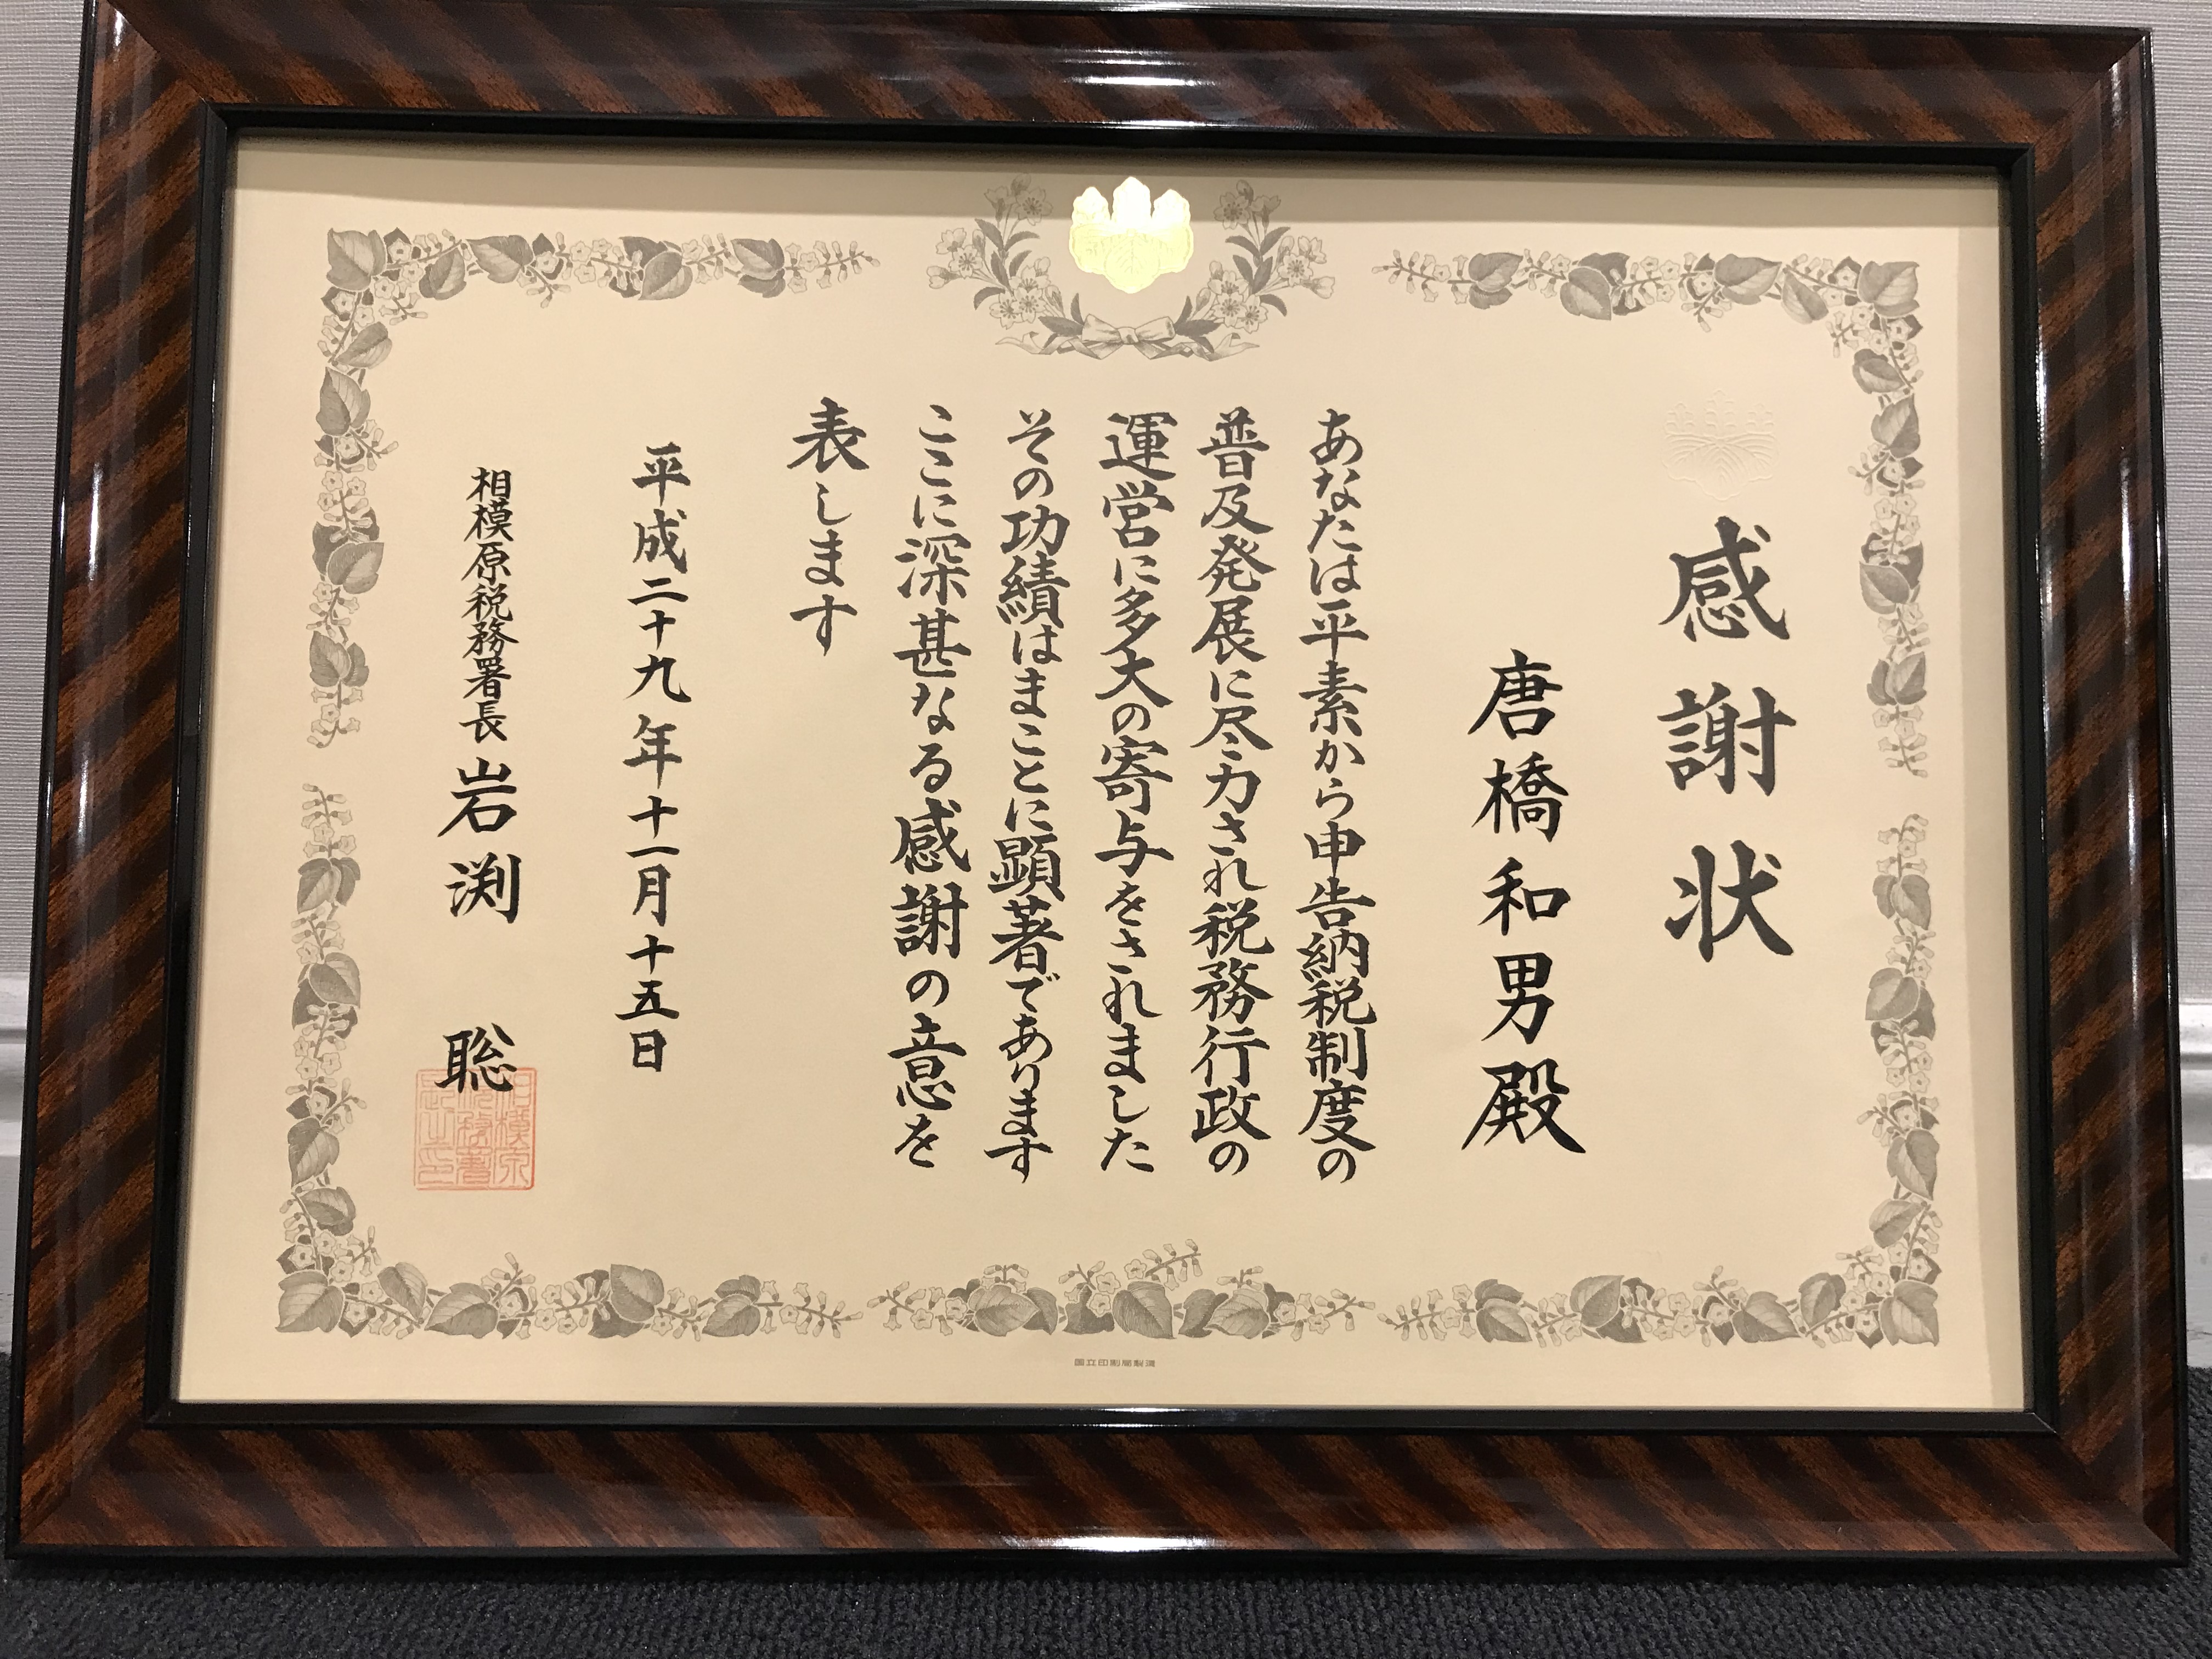 感謝状
唐橋和男殿
あなたは平素から申告納税制度の
普及発展に尽力され税務行政の
運営に多大の寄与をされました
その功績はまことに顕著であります
ここに深甚なる感謝の意を
表します
平成二十九年十一月十五日
相模原税務署長 岩渕 聡
相模原税務署長之印
国立印刷局製造